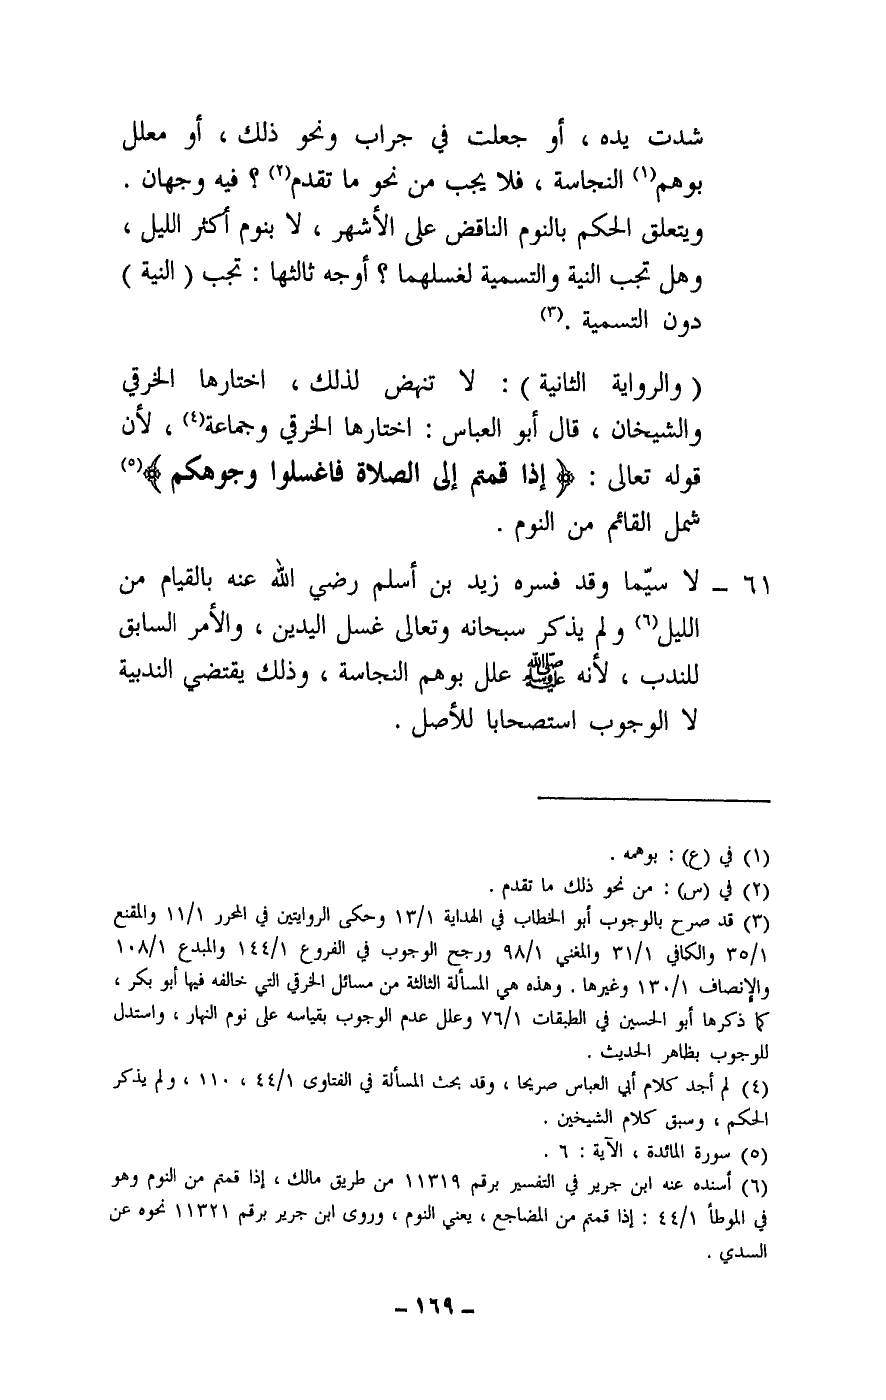 شدت يده ، أو جعلت في جراب ونحو ذلك ، أو معلل
بوهم(١) النجاسة ، فلا يجب من نحو ما تقدم(٢) ؟ فيه وجهان .
ويتعلق الحكم بالنوم الناقض على الأشهر ، لا بنوم أكثر الليل ،
وهل تجب النية والتسمية لغسلهما ؟ أوجه ثالثها : تجب ( النية )
دون التسمية .(٣)
( والرواية الثانية ) : لا تنهض لذلك ، اختارها الخرقي
والشيخان ، قال أبو العباس : اختارها الخرقي وجماعة(٤) ، لأن
قوله تعالى : ﴿ إذا قمتم إلى الصلاة فاغسلوا وجوهكم ﴾(٥)
شمل القائم من النوم .
٦١ – لا سيّما وقد فسره زيد بن أسلم رضي الله عنه بالقيام من
الليل(٦) ولم يذكر سبحانه وتعالى غسل اليدين ، والأمر السابق
للندب ، لأنه ﷺ علل بوهم النجاسة ، وذلك يقتضي الندبية
لا الوجوب استصحابا للأصل .
(١) في (ع) : بوهمه .
(٢) في (س) : من نحو ذلك ما تقدم .
(٣) قد صرح بالوجوب أبو الخطاب في الهداية ١٣/١ وحكى الروايتين في المحرر ١١/١ والمقنع
٣٥/١ والكافي ٣١/١ والمغني ٩٨/١ ورجح الوجوب في الفروع ١٤٤/١ والمبدع ١٠٨/١
والإنصاف ١٣٠/١ وغيرها . وهذه هي المسألة الثالثة من مسائل الخرقي التي خالفه فيها أبو بكر ،
كما ذكرها أبو الحسين في الطبقات ٧٦/١ وعلل عدم الوجوب بقياسه على نوم النهار ، واستدل
للوجوب بظاهر الحديث .
(٤) لم أجد كلام أبي العباس صريحا ، وقد بحث المسألة في الفتاوى ٤٤/١ ، ١١٠ ، ولم يذكر
الحكم ، وسبق كلام الشيخين .
(٥) سورة المائدة ، الآية : ٦ .
(٦) أسنده عنه ابن جرير في التفسير برقم ١١٣١٩ من طريق مالك ، إذا قمتم من النوم وهو
في الموطأ ٤٤/١ : إذا قمتم من المضاجع ، يعني النوم ، وروى ابن جرير برقم ١١٣٢١ نحوه عن
السدي .
– ١٦٩ –